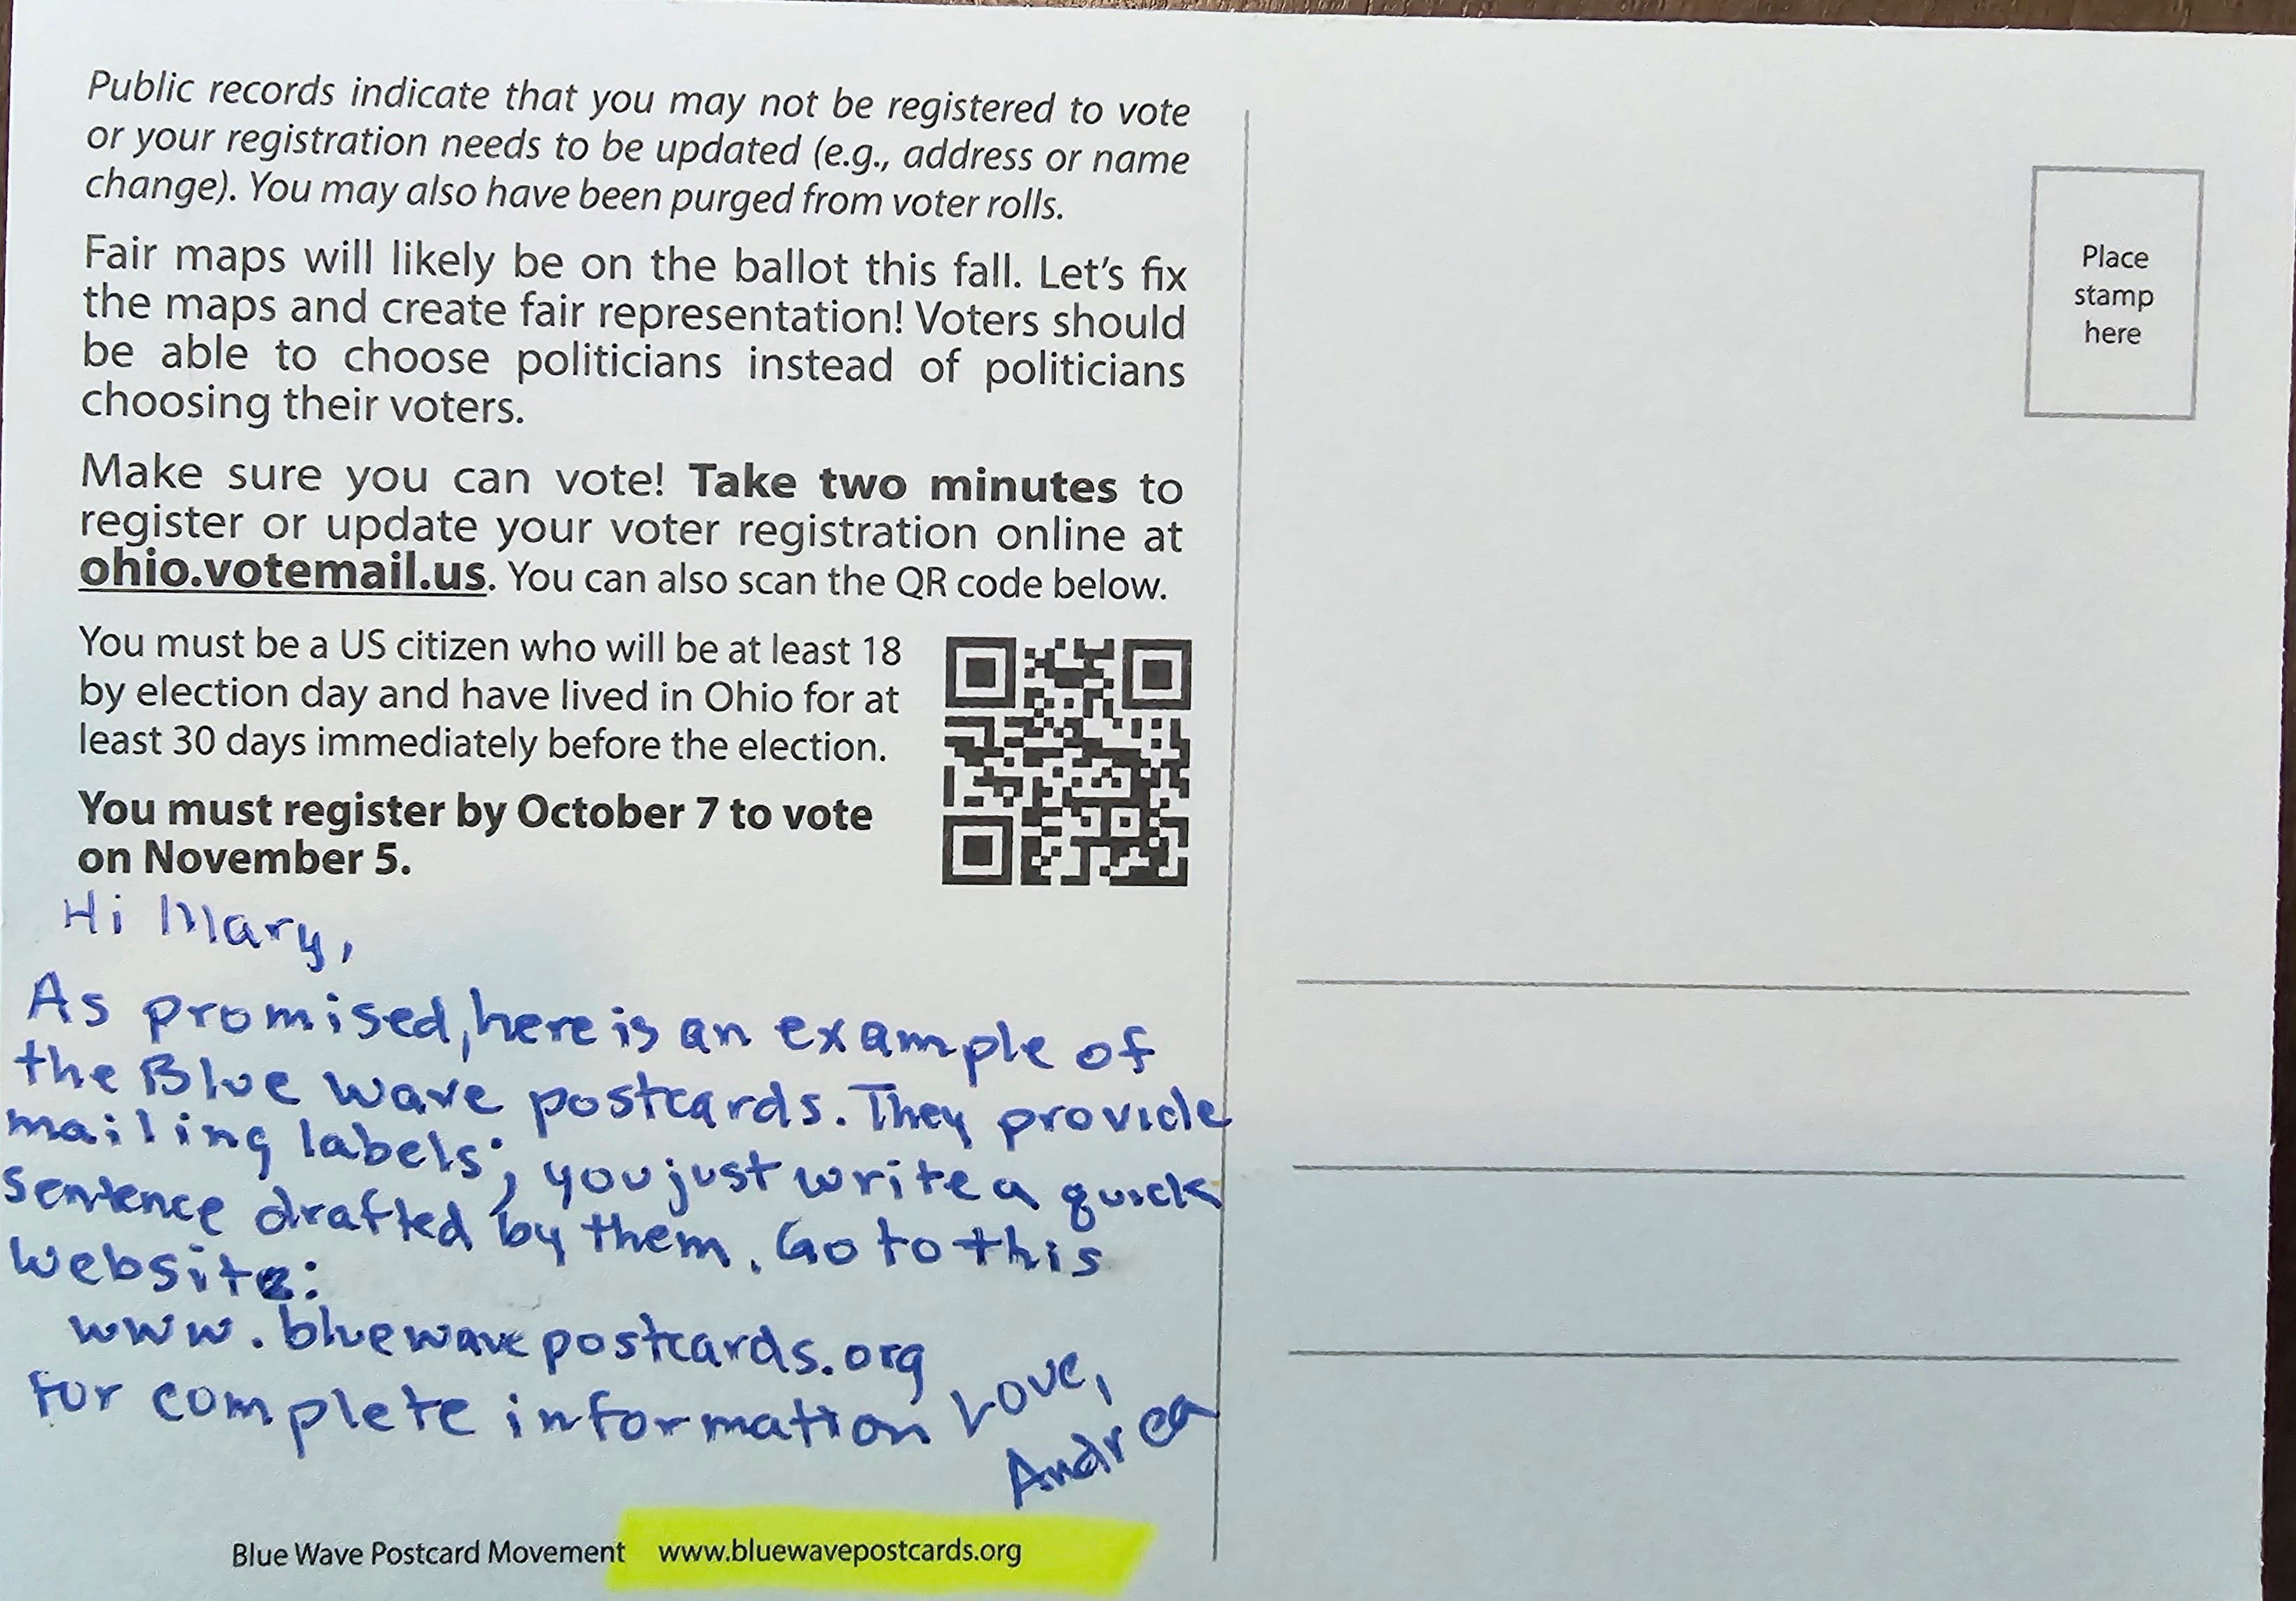 Public records indicate that you may not be registered to vote
or your registration needs to be updated (e.g., address or name
change). You may also have been purged from voter rolls.
Fair maps will likely be on the ballot this fall. Let's fix
the maps and create fair representation! Voters should
be able to choose politicians instead of politicians
choosing their voters.
Make sure you can vote! Take two minutes to
register or update your voter registration online at
ohio.votemail.us. You can also scan the QR code below.
You must be a US citizen who will be at least 18
by election day and have lived in Ohio for at
least 30 days immediately before the election.
You must register by October 7 to vote
on November 5.
Hi Mary,
As promised, here is an example of
the Blue wave postcards. They provide
mailing labels; you just write a quick
sentence drafted by them. Go to this
website:
www.bluewavepostcards.org
for complete information Love,
Andrea
Blue Wave Postcard Movement www.bluewavepostcards.org
Place
stamp
here